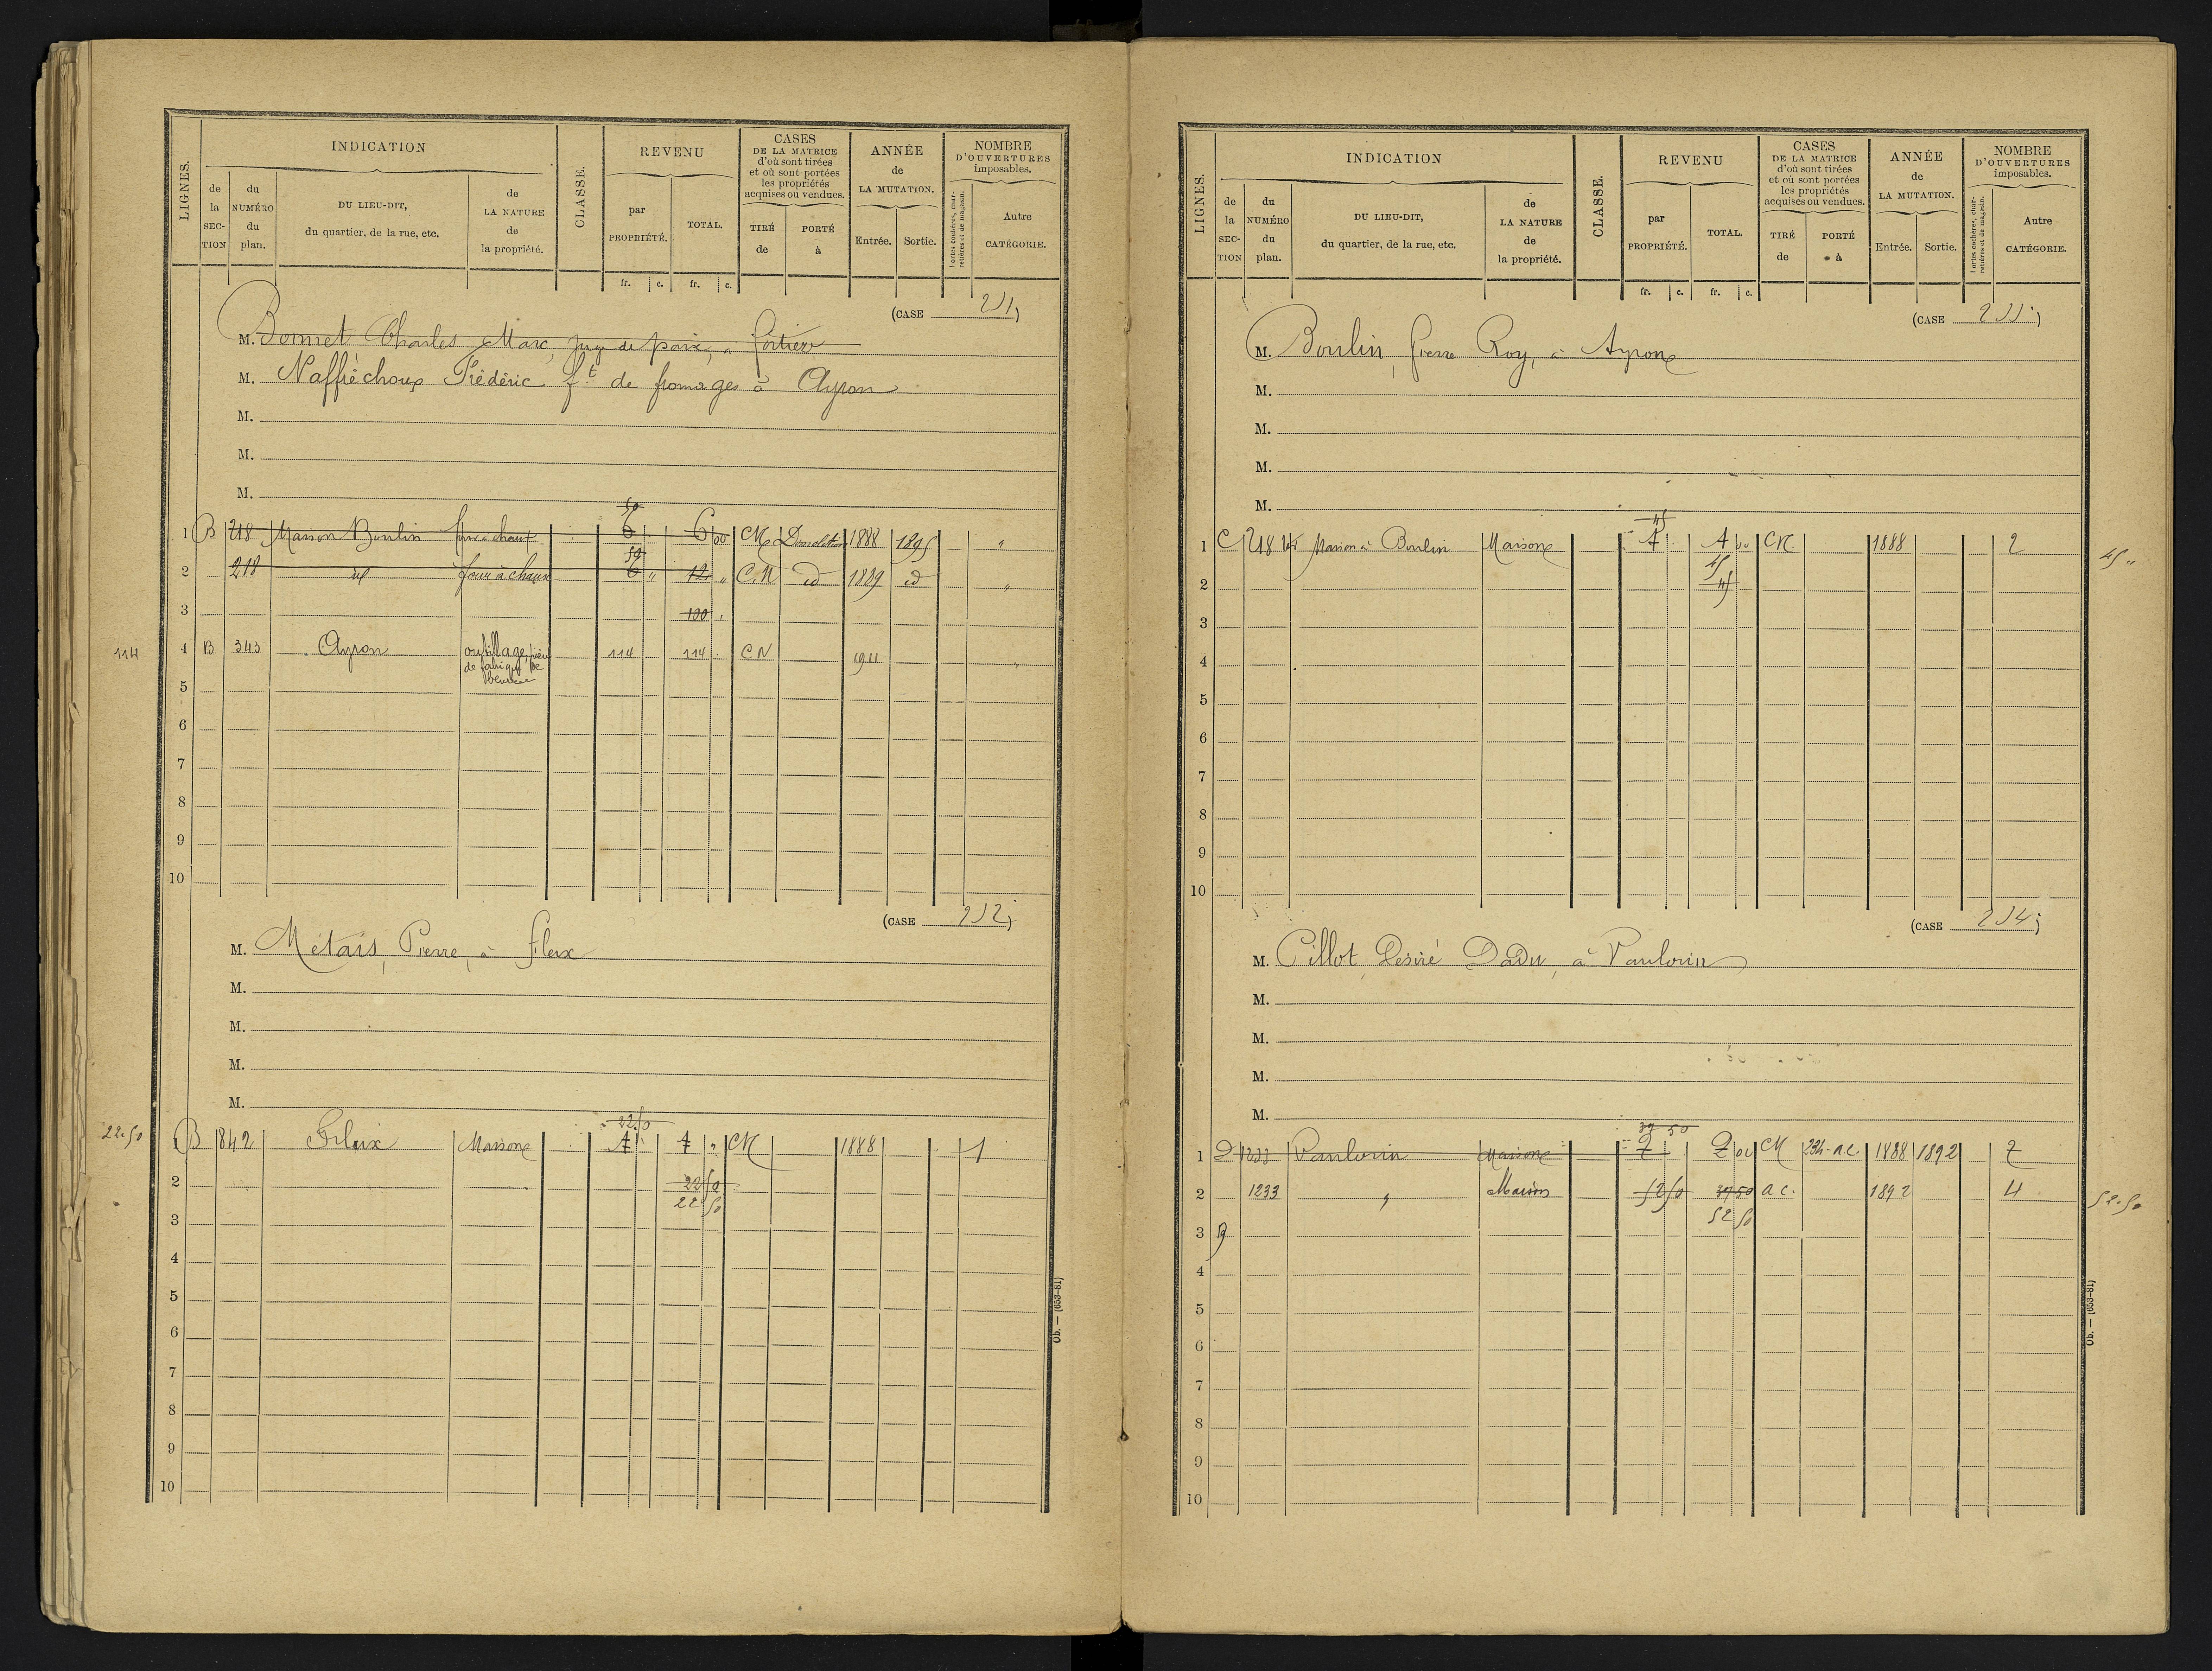 LIGNES.
INDICATION
de la SECTION
du NUMÉRO du plan.
DU LIEU-DIT, du quartier, de la rue, etc.
de LA NATURE de la propriété.
CLASSE.
REVENU
par PROPRIÉTÉ.
TOTAL.
CASES DE LA MATRICE d'où sont tirées et où sont portées les propriétés acquises ou vendues.
TIRÉ de
PORTÉ à
ANNÉE de LA MUTATION.
Entrée.
Sortie.
NOMBRE D'OUVERTURES imposables.
Portes cochères, charretières et de magasin.
Autre CATÉGORIE.
fr. c. fr. c.
(CASE 251)
M. Bonnet Charles Marc, juge de paix, à
M. Naffréchoux Frédéric f.t de fromages à Ayron
M.
M.
M.
50
1 B 218 Maison Boulin four à chaux 6 6 00 CN Démolition 1888 1895 "
50
2 218 id four à chaux 6 " 12 " C.N id 1889 id "
3 100
114 4 B 343 Ayron outillage de fabrique de beurre 114 114 CN 1911 "
5
6
7
8
9
10
(CASE 252)
M. Métais, Pierre, à Fleix
M.
M.
M.
M.
22.50
22.50 B 842 Fleix Maison 4 4 " CN 1888 1
2 22 50
22 50
3
4
5
6
7
8
9
10
Ob. — (653-81)
LIGNES.
INDICATION
de la SECTION
du NUMÉRO du plan.
DU LIEU-DIT, du quartier, de la rue, etc.
de LA NATURE de la propriété.
CLASSE.
REVENU
par PROPRIÉTÉ.
TOTAL.
CASES DE LA MATRICE d'où sont tirées et où sont portées les propriétés acquises ou vendues.
TIRÉ de
PORTÉ à
ANNÉE de LA MUTATION.
Entrée.
Sortie.
NOMBRE D'OUVERTURES imposables.
Portes cochères, charretières et de magasin.
Autre CATÉGORIE.
fr. c. fr. c.
(CASE 253)
M. Boulin, Pierre Roy, à Ayron
M.
M.
M.
M.
45
1 C 218 bis Maison à Boulin Maison 4 4 00 CN. 1888 2 45 "
2 45
45
3
4
5
6
7
8
9
10
(CASE 254)
M. Pillot, Désiré Dadu, à Vaulorin
M.
M.
M.
M.
39 50
1 D 1233 Vaulorin Maison 7 7 00 CN 234 a.c. 1888 1892 7
2 1233 " Maison 52 50 39 50 a c. 1892 4 52.50
52 50
3
4
5
6
7
8
9
10
Ob. — (653-81)